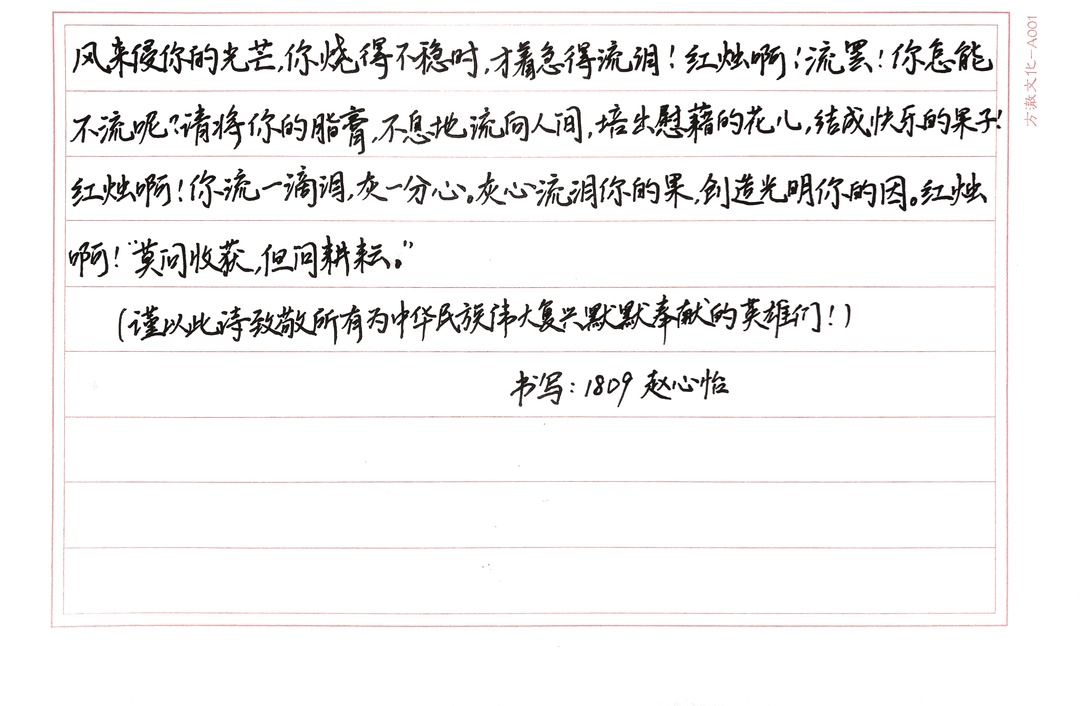 风来侵你的光芒,你烧得不稳时,才着急得流泪!红烛啊!流罢!你怎能
不流呢?请将你的脂膏,不息地流向人间,培出慰藉的花儿,结成快乐的果子!
红烛啊!你流一滴泪,灰一分心。灰心流泪你的果,创造光明你的因。红烛
啊!“莫问收获,但问耕耘。”
(谨以此诗致敬所有为中华民族伟大复兴默默奉献的英雄们!)
书写:1809 赵心怡
方澈文化-A001